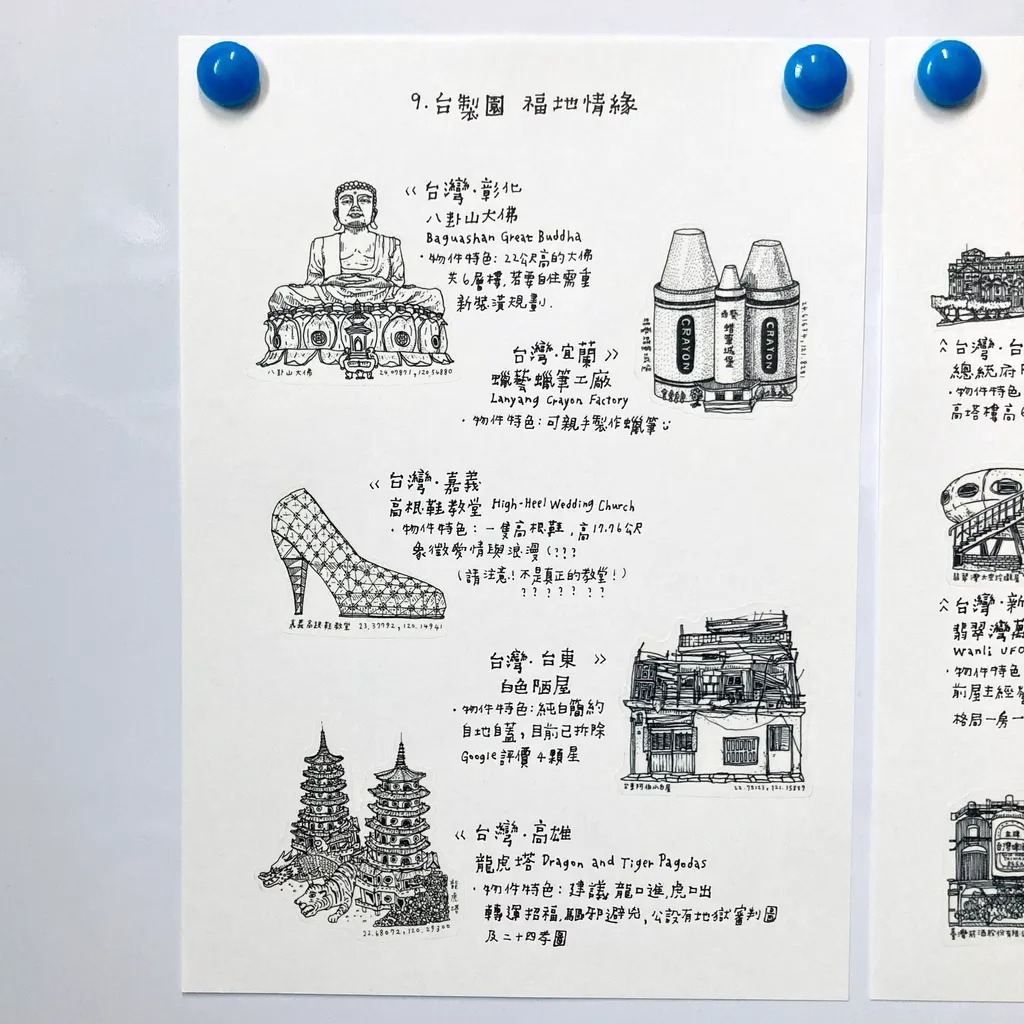 9.台製園 福地情緣
‹‹ 台灣·彰化
八卦山大佛
Baguashan Great Buddha
·物件特色：22公尺高的大佛
共6層樓，若要自住需重
新裝潢規劃.
八卦山大佛
24.07871, 120.54880
台灣·宜蘭 ››
蠟藝蠟筆工廠
Lanyang Crayon Factory
·物件特色：可親手製作蠟筆
CRAYON
蠟筆城堡
CRAYON
‹‹ 台灣·嘉義
高根鞋教堂 High-Heel Wedding Church
·物件特色：一隻高根鞋，高17.76公尺
象徵愛情與浪漫(???
(請注意！不是真正的教堂！)
? ? ? ? ? ?
台灣·台東 ››
白色陋屋
·物件特色：純白簡約
自地自蓋，目前已拆除
Google評價4顆星
‹‹ 台灣·高雄
龍虎塔 Dragon and Tiger Pagodas
·物件特色：建議龍口進，虎口出
轉運招福，驅邪避兇，公設有地獄審判圖
及二十四孝圖
龍虎塔
22.68072, 120.29300
總統府
·物件特色
高塔樓高6
台灣·新
翡翠灣
Wanli UFO
·物件特色
前屋主經
格局一房一